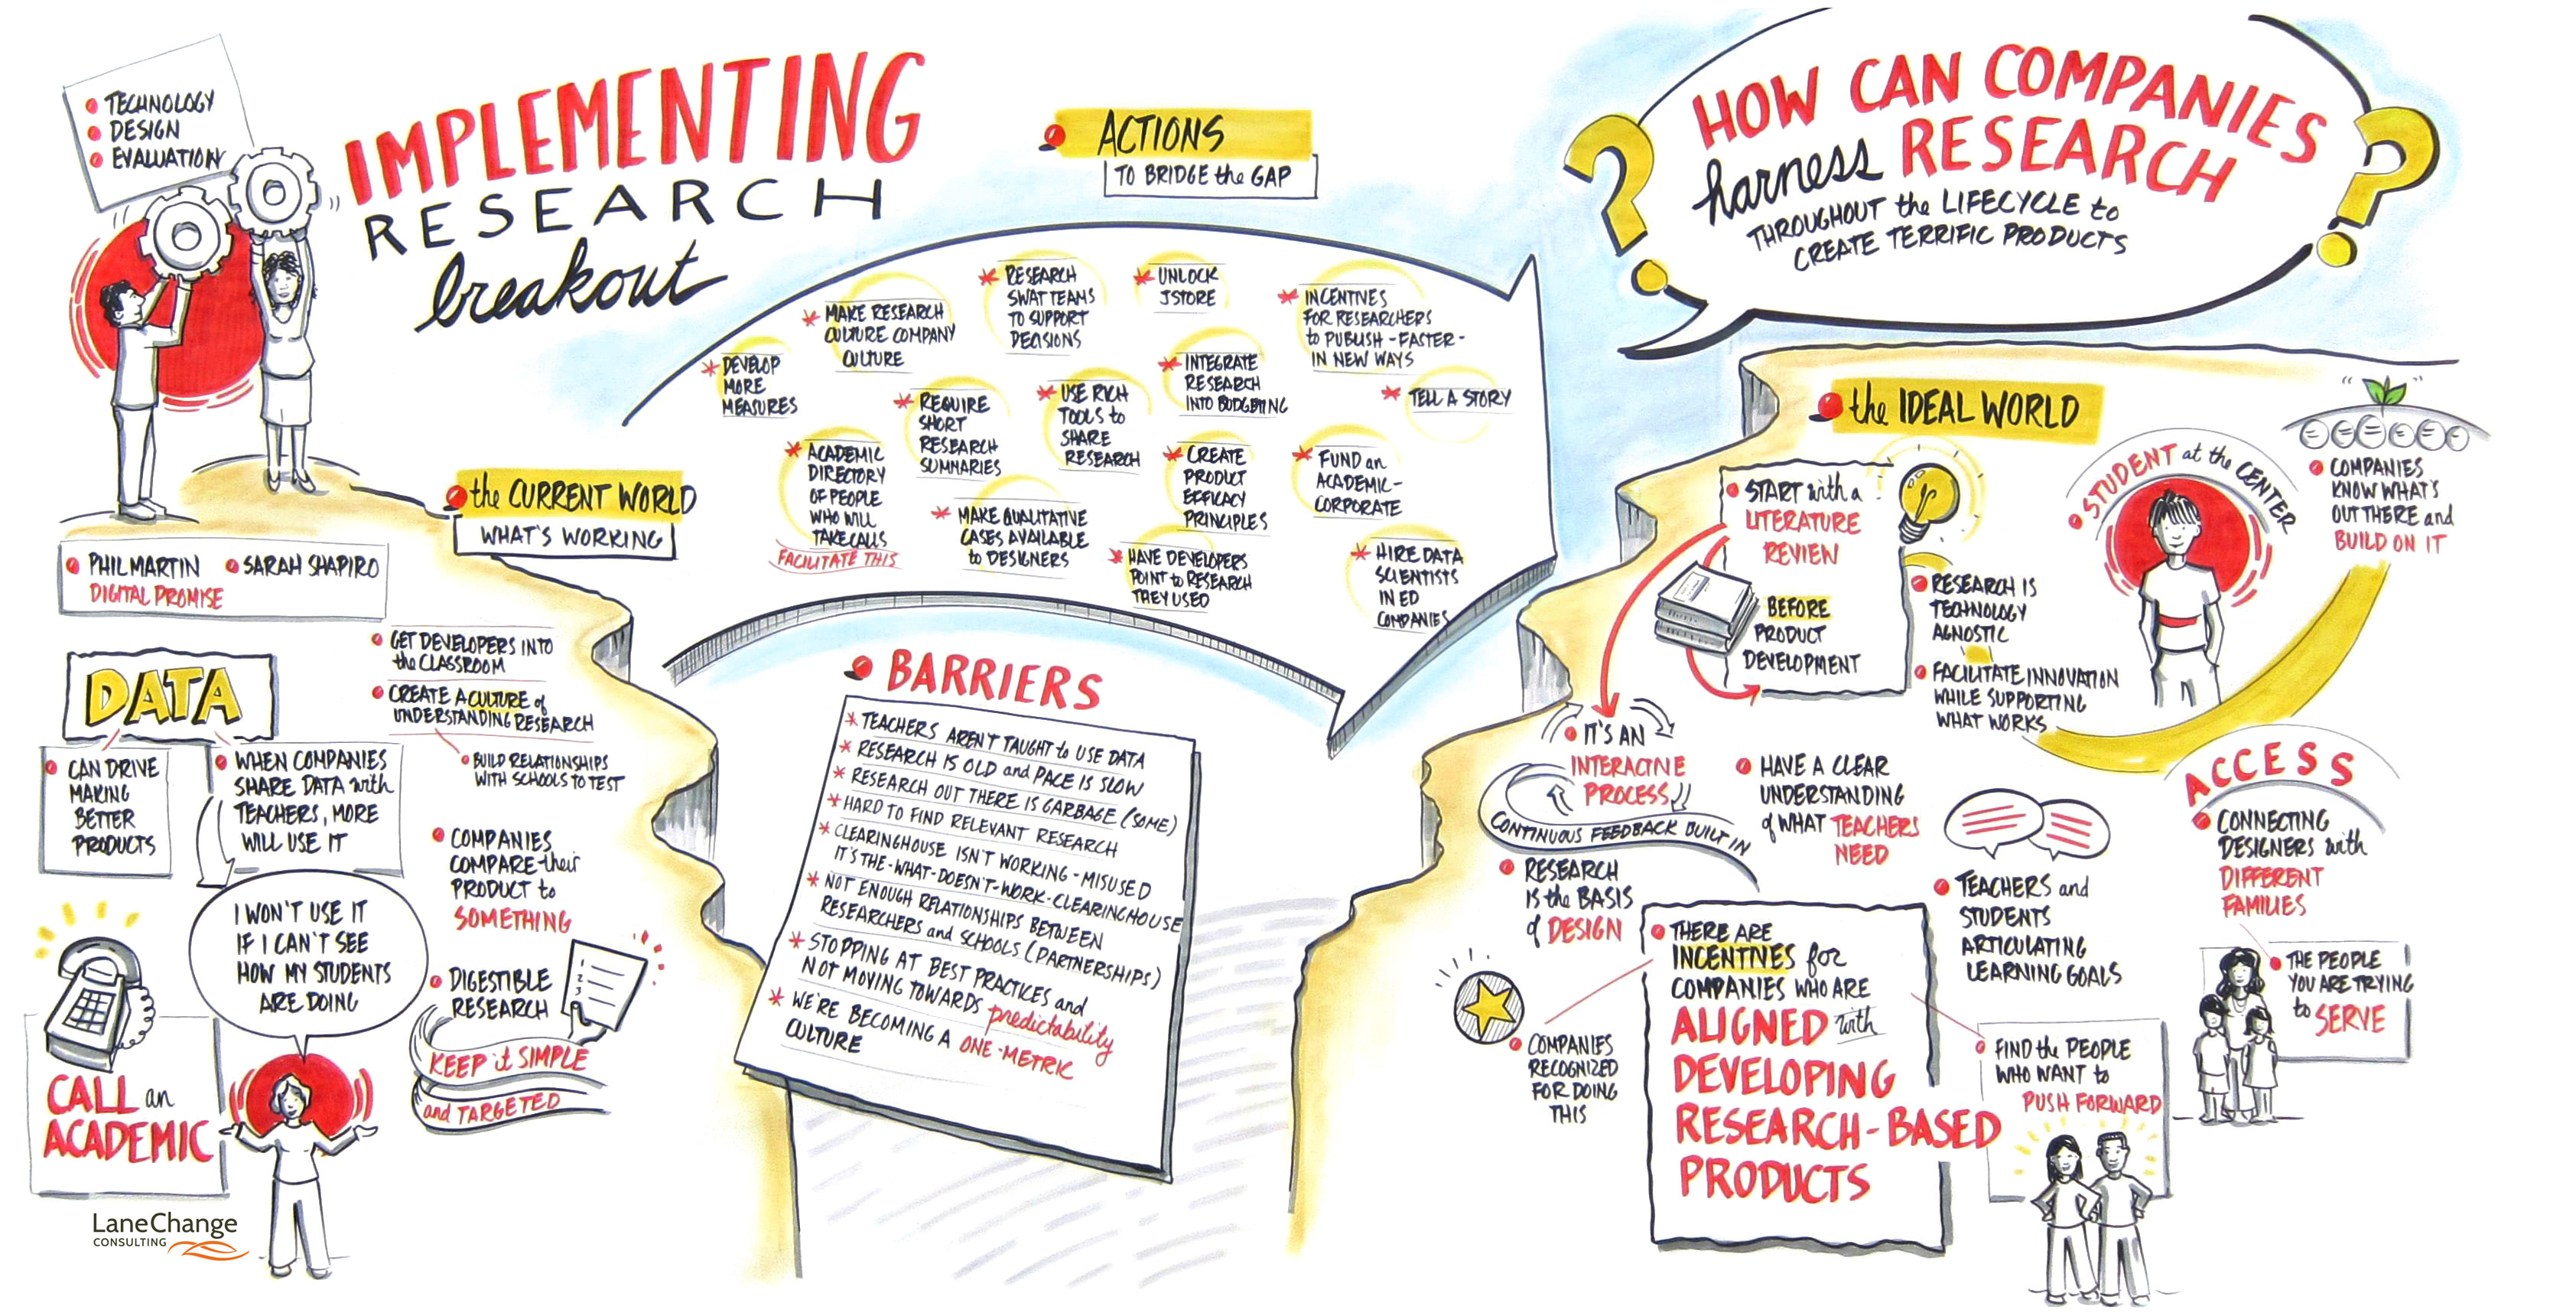 TECHNOLOGY
DESIGN
EVALUATION
IMPLEMENTING
RESEARCH
breakout
PHIL MARTIN
DIGITAL PROMISE
SARAH SHAPIRO
the CURRENT WORLD
WHAT'S WORKING
GET DEVELOPERS INTO
the CLASSROOM
CREATE A CULTURE of
UNDERSTANDING RESEARCH
BUILD RELATIONSHIPS
WITH SCHOOLS TO TEST
DATA
CAN DRIVE
MAKING
BETTER
PRODUCTS
WHEN COMPANIES
SHARE DATA with
TEACHERS, MORE
WILL USE IT
I WON'T USE IT
IF I CAN'T SEE
HOW MY STUDENTS
ARE DOING
COMPANIES
COMPARE their
PRODUCT to
SOMETHING
DIGESTIBLE
RESEARCH
1
2
3
KEEP it SIMPLE
and TARGETED
CALL an
ACADEMIC
LaneChange
CONSULTING
ACTIONS
TO BRIDGE the GAP
DEVELOP
MORE
MEASURES
MAKE RESEARCH
CULTURE COMPANY
CULTURE
RESEARCH
SWAT TEAMS
TO SUPPORT
DECISIONS
UNLOCK
JSTORE
INCENTIVES
FOR RESEARCHERS
to PUBLISH - FASTER -
IN NEW WAYS
ACADEMIC
DIRECTORY
OF PEOPLE
WHO WILL
TAKE CALLS
FACILITATE THIS
REQUIRE
SHORT
RESEARCH
SUMMARIES
USE RICH
TOOLS to
SHARE
RESEARCH
INTEGRATE
RESEARCH
INTO BUDGETING
TELL A STORY
MAKE QUALITATIVE
CASES AVAILABLE
to DESIGNERS
CREATE
PRODUCT
EFFICACY
PRINCIPLES
FUND an
ACADEMIC-
CORPORATE
HAVE DEVELOPERS
POINT to RESEARCH
THEY USED
HIRE DATA
SCIENTISTS
IN ED
COMPANIES
BARRIERS
TEACHERS AREN'T TAUGHT to USE DATA
RESEARCH IS OLD and PACE IS SLOW
RESEARCH OUT THERE IS GARBAGE (SOME)
HARD TO FIND RELEVANT RESEARCH
CLEARINGHOUSE ISN'T WORKING - MISUSED
IT'S THE-WHAT-DOESN'T-WORK-CLEARINGHOUSE
NOT ENOUGH RELATIONSHIPS BETWEEN
RESEARCHERS and SCHOOLS (PARTNERSHIPS)
STOPPING AT BEST PRACTICES and
NOT MOVING TOWARDS predictability
WE'RE BECOMING A ONE-METRIC
CULTURE
? HOW CAN COMPANIES ?
harness RESEARCH
THROUGHOUT the LIFECYCLE to
CREATE TERRIFIC PRODUCTS
the IDEAL WORLD
START with a
LITERATURE
REVIEW
BEFORE
PRODUCT
DEVELOPMENT
STUDENT at the CENTER
COMPANIES
KNOW WHAT'S
OUT THERE and
BUILD ON IT
RESEARCH IS
TECHNOLOGY
AGNOSTIC
FACILITATE INNOVATION
WHILE SUPPORTING
WHAT WORKS
IT'S AN
INTERACTIVE
PROCESS
CONTINUOUS FEEDBACK BUILT IN
HAVE A CLEAR
UNDERSTANDING
of WHAT TEACHERS
NEED
RESEARCH
IS the BASIS
of DESIGN
TEACHERS and
STUDENTS
ARTICULATING
LEARNING GOALS
ACCESS
CONNECTING
DESIGNERS with
DIFFERENT
FAMILIES
THE PEOPLE
YOU ARE TRYING
to SERVE
THERE ARE
INCENTIVES for
COMPANIES WHO ARE
ALIGNED with
DEVELOPING
RESEARCH-BASED
PRODUCTS
COMPANIES
RECOGNIZED
FOR DOING
THIS
FIND the PEOPLE
WHO WANT to
PUSH FORWARD